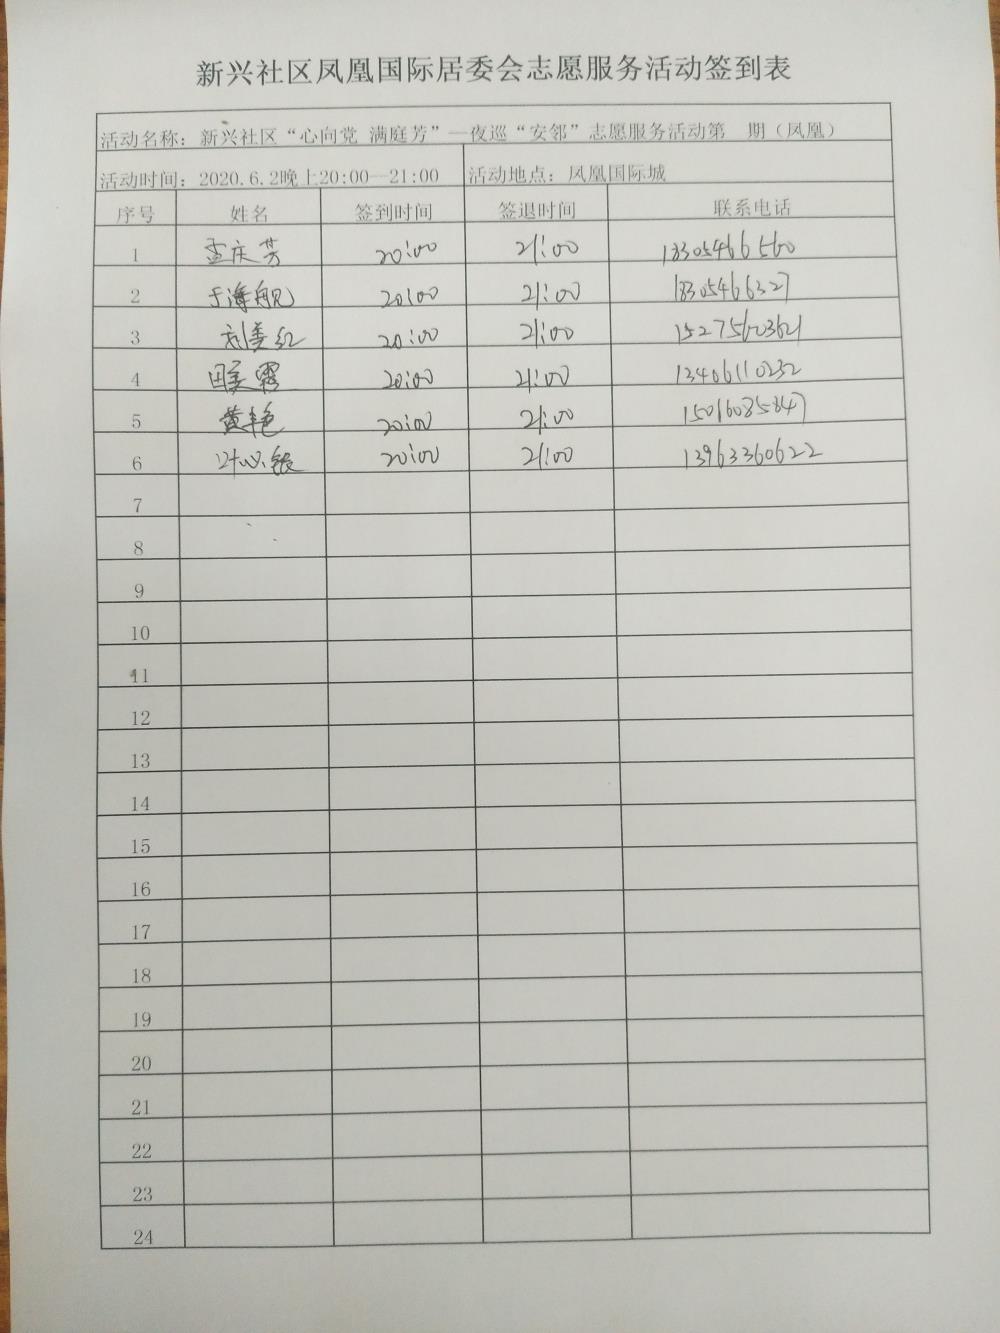 新兴社区凤凰国际居委会志愿服务活动签到表
活动名称：新兴社区“心向党 满庭芳”—夜巡“安邻”志愿服务活动第 期（凤凰）
活动时间：2020.6.2晚上20:00—21:00 活动地点：凤凰国际城
序号 姓名 签到时间 签退时间 联系电话
1 孟庆芳 20:00 21:00 18305466560
2 于海舰 20:00 21:00 18305466327
3 刘美红 20:00 21:00 15275603621
4 田美霞 20:00 21:00 13406110232
5 黄丰艳 20:00 21:00 15016085847
6 20:00 21:00 13963360622
7
8
9
10
11
12
13
14
15
16
17
18
19
20
21
22
23
24